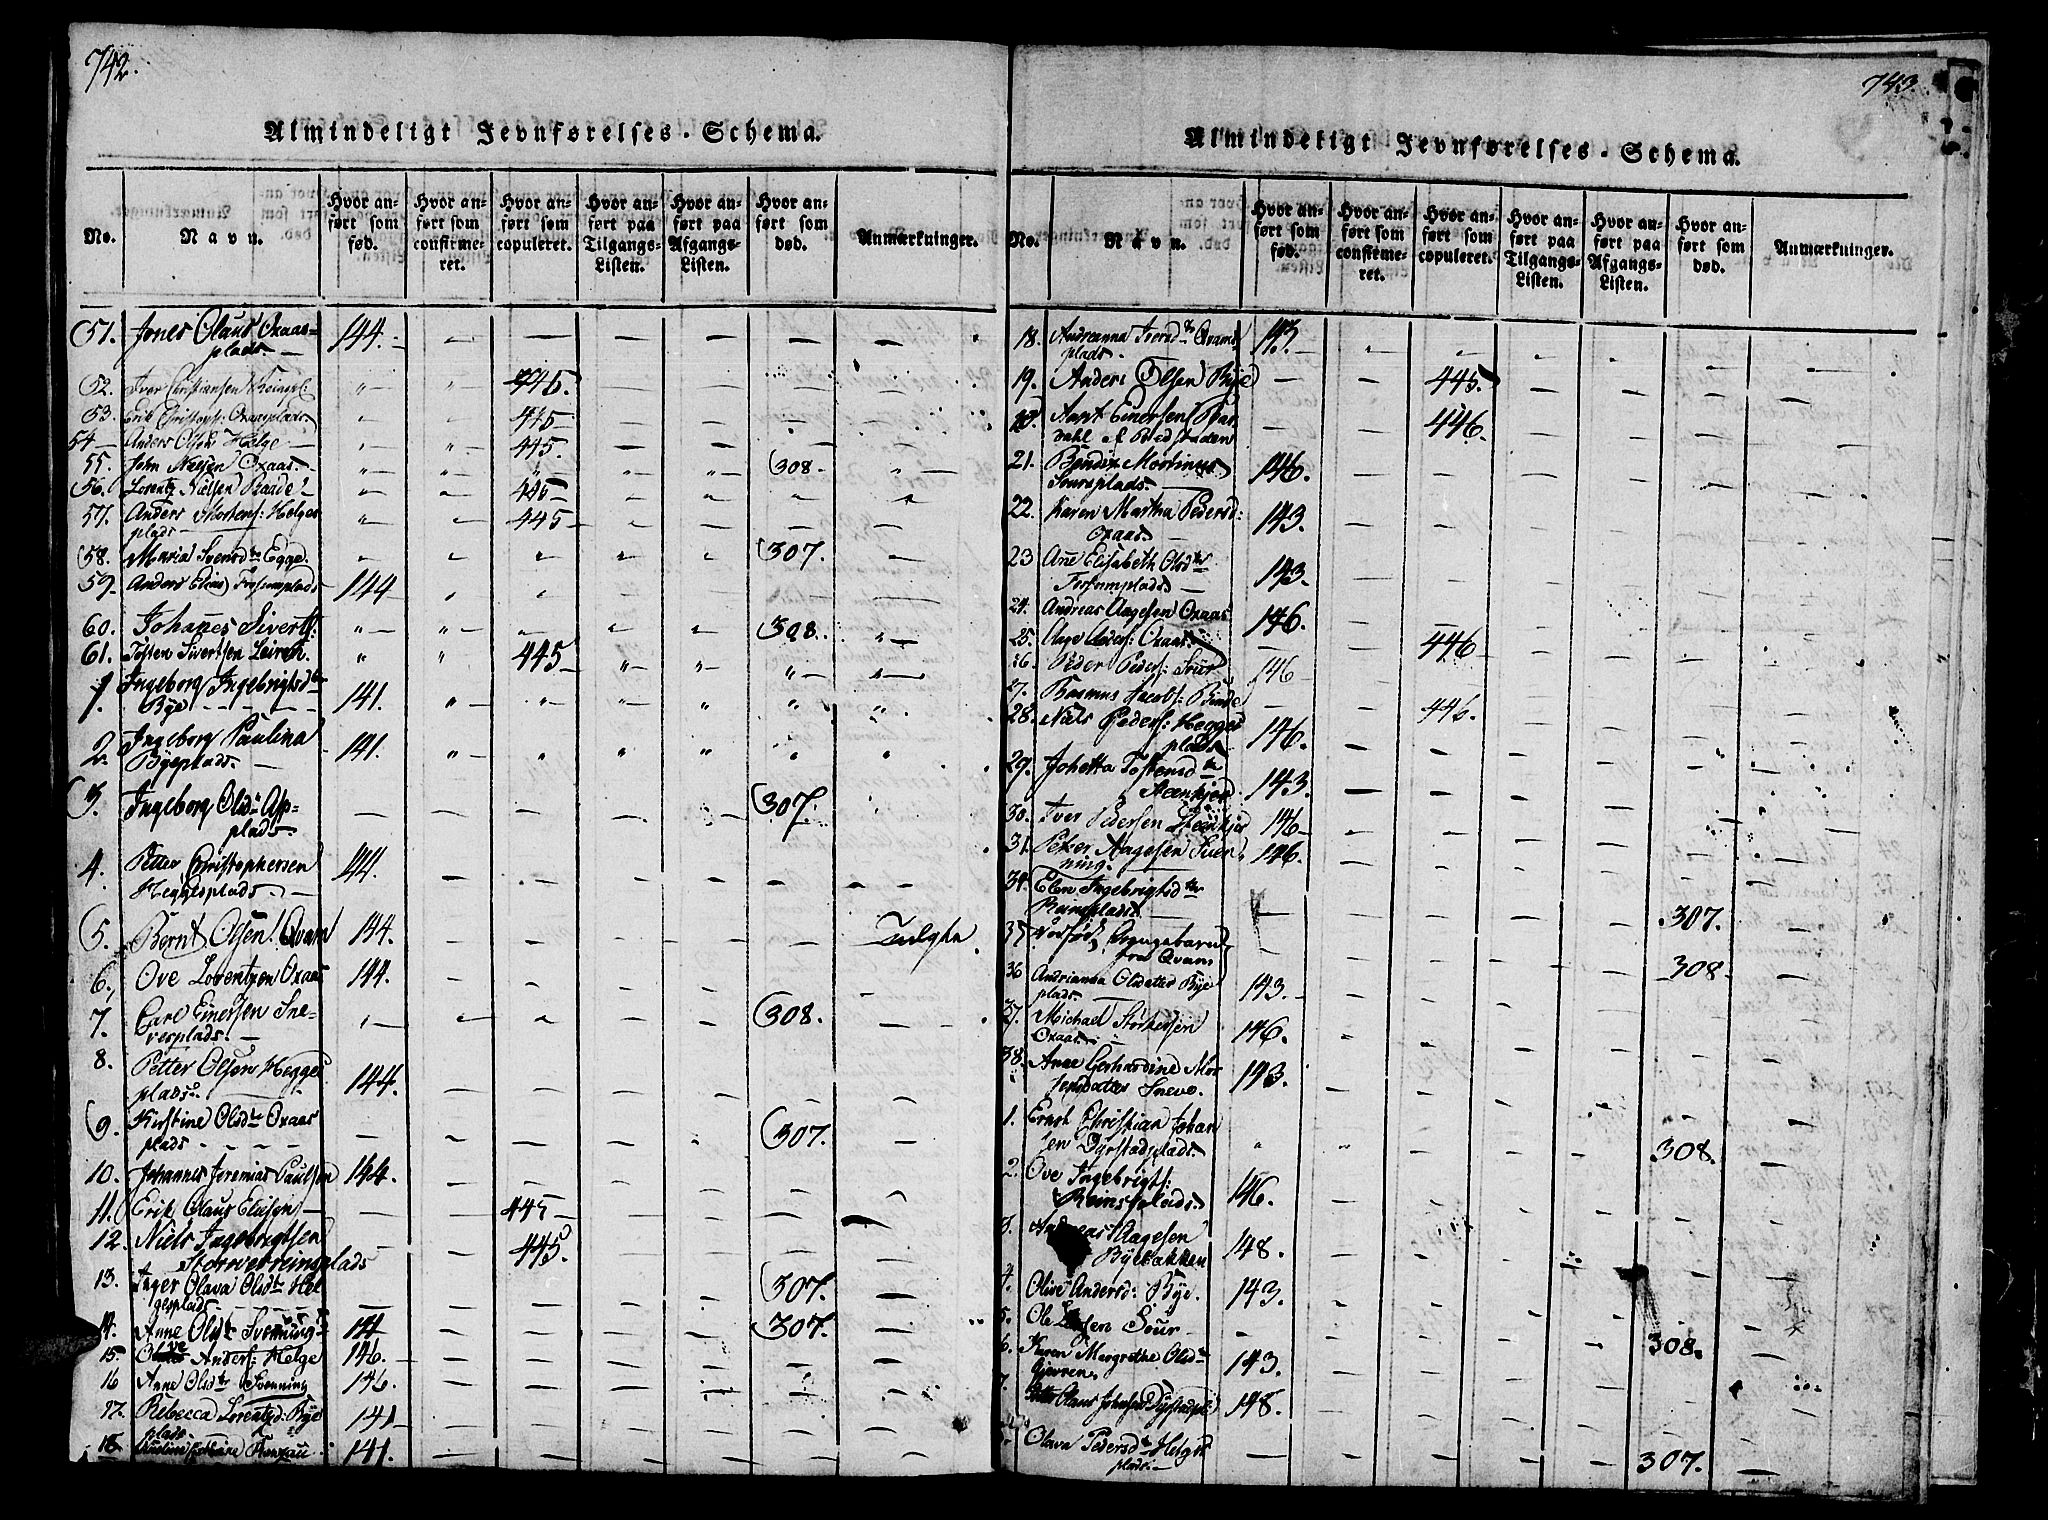 742.
Almindeligt Jevnførelses-Schema.
No. Navn. Hvor anført som fød. Hvor anført som confirmeret. Hvor anført som copuleret. Hvor anført paa Tilgangs-Listen. Hvor anført paa Afgangs-Listen. Hvor anført som død. Anmærkninger.
51. Jones Olaus Oxaas-
plads. 144.
52. Iver Christiansen 445.
53. Erik Christoph: Qvamplads 445
54 Anders Olsen Helge 445.
55. John Nielsen Oxaas. 308.
56. Lorentz Nielsen Raade 445
57. Anders Mortens: Helges
plads 445
58. Maria Svensdtr Egge. 307.
59. Anders Elias Forsemplads 144
60. Johanes Siverts: 308.
61. Tosten Sivertsen Leiren. 445
1. Ingeborg Ingebrigtsdtr
Bye 141.
2. Ingeborg Paulina
Byeplads. 141.
3. Ingeborg Olsdr Asp
plads 307.
4. Petter Christophersen
Heggesplads. 144.
5. Bernt Olsen Qvam 144.
6. Ove Lorentzen Oxaas 144.
7. Carl Einersen Sne-
vesplads. 308.
8. Petter Olsen Hegges
plads. 144.
9. Kirstine Olsdtr Oxaas
plads 307.
10. Johannes Jeremias Paulsen 144.
11. Erik Olaus Eliesen 445
12. Niels Ingebrigtsen
Storrereinsplads 445.
13. Inger Olava Olsdtr Hel
gesplads 307.
14. Anne Olsdtr Svenning 144 307.
15. Anders: Helge 146.
16 Anne Olsdtr Svenning 146.
17. Rebecca Lorentzd: Bye
plads. 141
18. 141.
743.
Almindeligt Jevnførelses-Schema.
No. Navn. Hvor anført som fød. Hvor anført som confirmeret. Hvor anført som copuleret. Hvor anført paa Tilgangs-Listen. Hvor anført paa Afgangs-Listen. Hvor anført som død. Anmærkninger.
18. Andreanna Iversdtr Qvams
plads. 143
19. Anders Olsen Bye 445.
20. Aart Einersen
dahl af Bedstaden 446.
21. Bendix Mortinus
Soursplads. 146.
22. Karen Martha Pedersd:
Oxaas 143.
23 Ane Elisabeth Olsdtr
Forsemplads 143.
24. Andreas Aagesen Oxaas 146.
25. Aage Anders: Oxaas 446
26. Peder Peders: Sour 146
27. Rasmus Jacobs: Binde 446.
28. Niels Peders: Hegges
plads 146.
29. Johetta Tostensdtr
Steenkjer 143.
30. Iver Pedersen Steenkjer 146
31. Peter Aagesen Sven
ning. 146.
34. Elen Ingebrigtsdtr
Reinsplads. 307.
35 Dødfødt Drengebarn
fra Qvam 308
36 Andrianna Olsdatter Bye
plads. 143.
37. Michael Størkersen
Oxaas. 146.
38. Anne Gerhardine Mor
tensdatter Sneve. 143.
1. Ernst Christian Johan
sen Dyrstadplads. 308.
2. Ove Ingebrigts:
Reinsplads 146.
3. Andreas Aagesen
Byebakken 148.
4. Olive Andersd: Bye. 143.
5. Ole Larsen Sour 308.
6. Karen Margrethe Olsdtr
Gjævren. 143.
7. Olaus Johnsen Dyrstadpl: 148.
8. Olava Pedersdtr Helges
plads. 307.